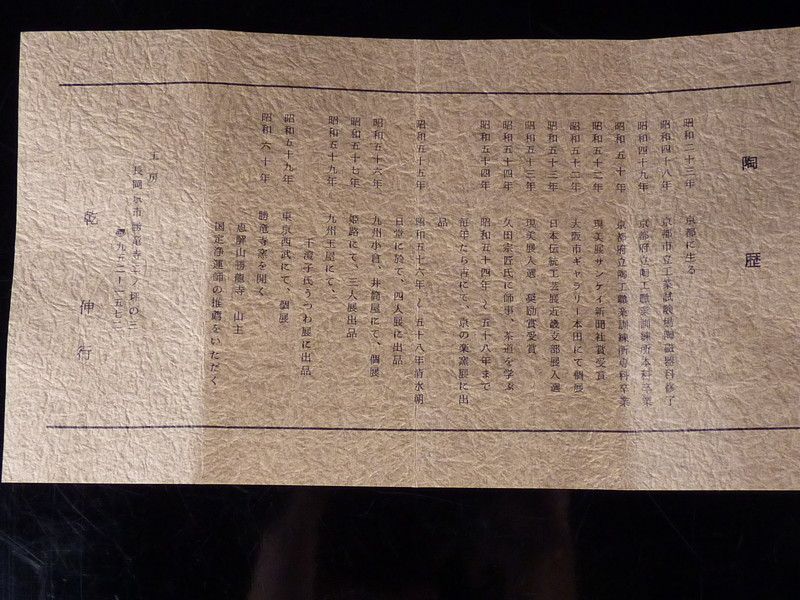 陶歴
昭和二十三年 京都に生る
昭和四十八年 京都市立工業試験場陶磁器科修了
昭和四十九年 京都府立陶工職業訓練所本科卒業
昭和五十年 京都府立陶工職業訓練所専科卒業
昭和五十二年 現美展サンケイ新聞社賞受賞
昭和五十二年 大阪市ギャラリー本田にて個展
昭和五十三年 日本伝統工芸展近畿支部展入選
昭和五十三年 現美展入選 奨励賞受賞
昭和五十四年 久田宗匠氏に師事、茶道を学ぶ
昭和五十四年 昭和五十四年~五十八年まで
毎年たち吉にて、京の業窯展に出
品
昭和五十五年 昭和五十六年~五十八年清水明
日堂に於て、四人展に出品
昭和五十六年 九州小倉、井筒屋にて、個展
昭和五十七年 姫路にて、三人展出品
昭和五十九年 九州玉屋にて、
千流子氏うつわ展に出品
昭和五十九年 東京西武にて、個展
昭和六十年 勝竜寺窯を開く
恵解山勝龍寺 山主
国定浄運師の推薦をいただく
工房
長岡京市勝竜寺二ノ坪の三
乾伸行